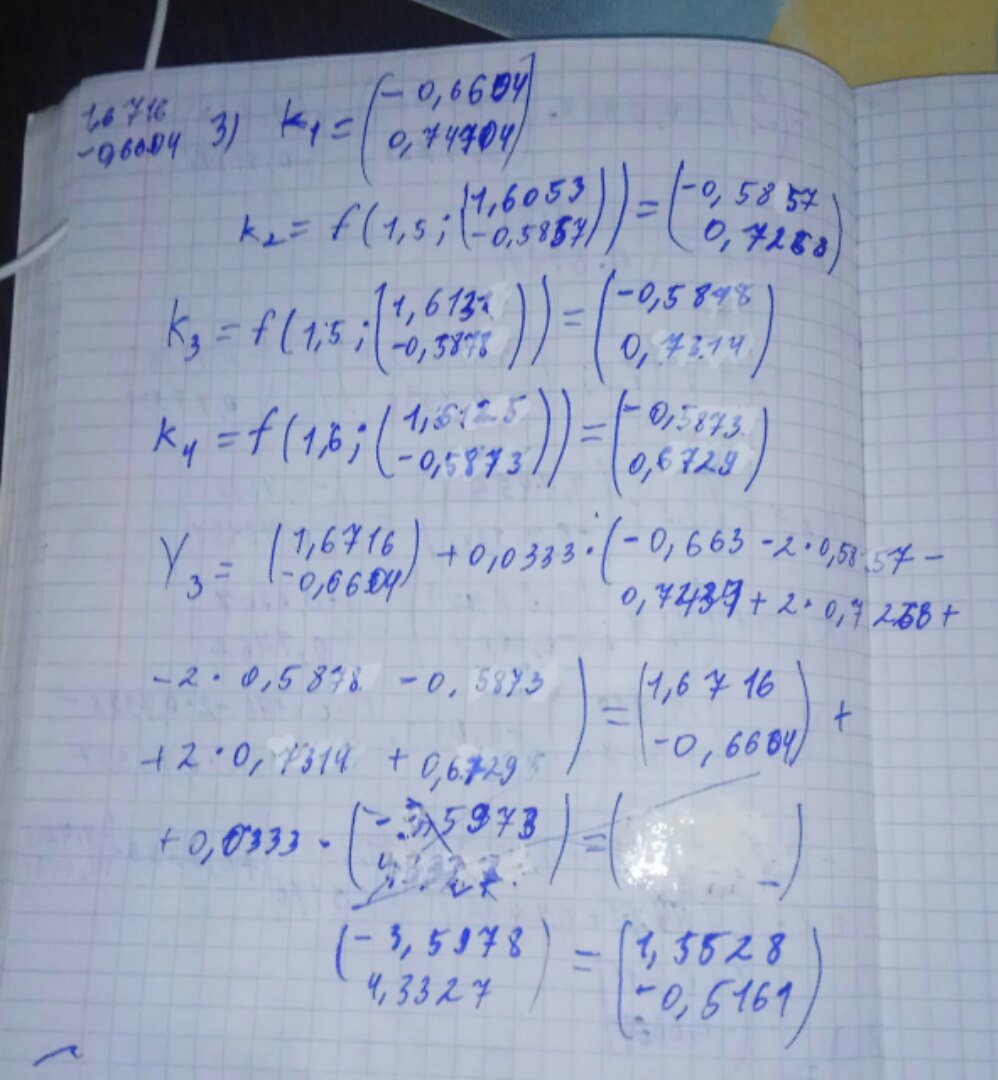 1,6716
-0,6604
3) k₁ = (-0,6604
0,74704)
k₂ = f(1,5; (1,6053
-0,5857)) = (-0,5857
0,7268)
k₃ = f(1,5; (1,613
-0,5878)) = (-0,5878
0,7314)
k₄ = f(1,6; (1,6125
-0,5873)) = (-0,5873
0,6729)
Y₃ = (1,6716
-0,6604) + 0,0333 · (-0,663 - 2 · 0,5857 -
0,7437 + 2 · 0,7268 +
- 2 · 0,5878 - 0,5873
+ 2 · 0,7314 + 0,6729) = (1,6716
-0,6604) +
+ 0,0333 · (-3,5973
) = (
)
(-3,5978
4,3327) = (1,5528
-0,5161)